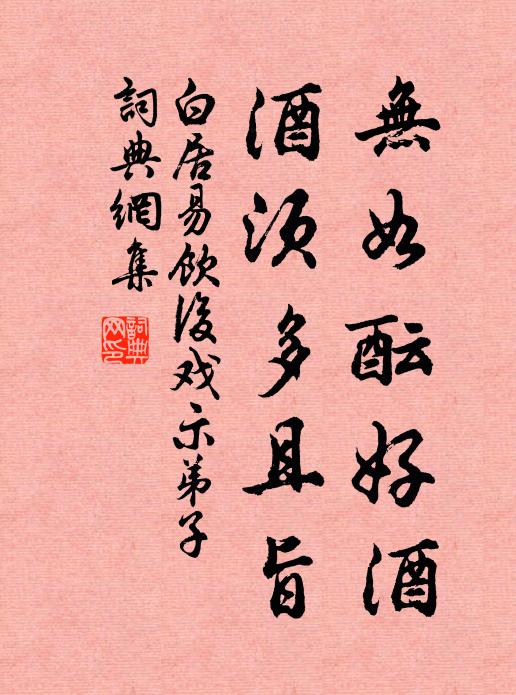 無如酝好酒
酒須多且旨
白居易飲後戏示弟子
詞典網集
詞典网印